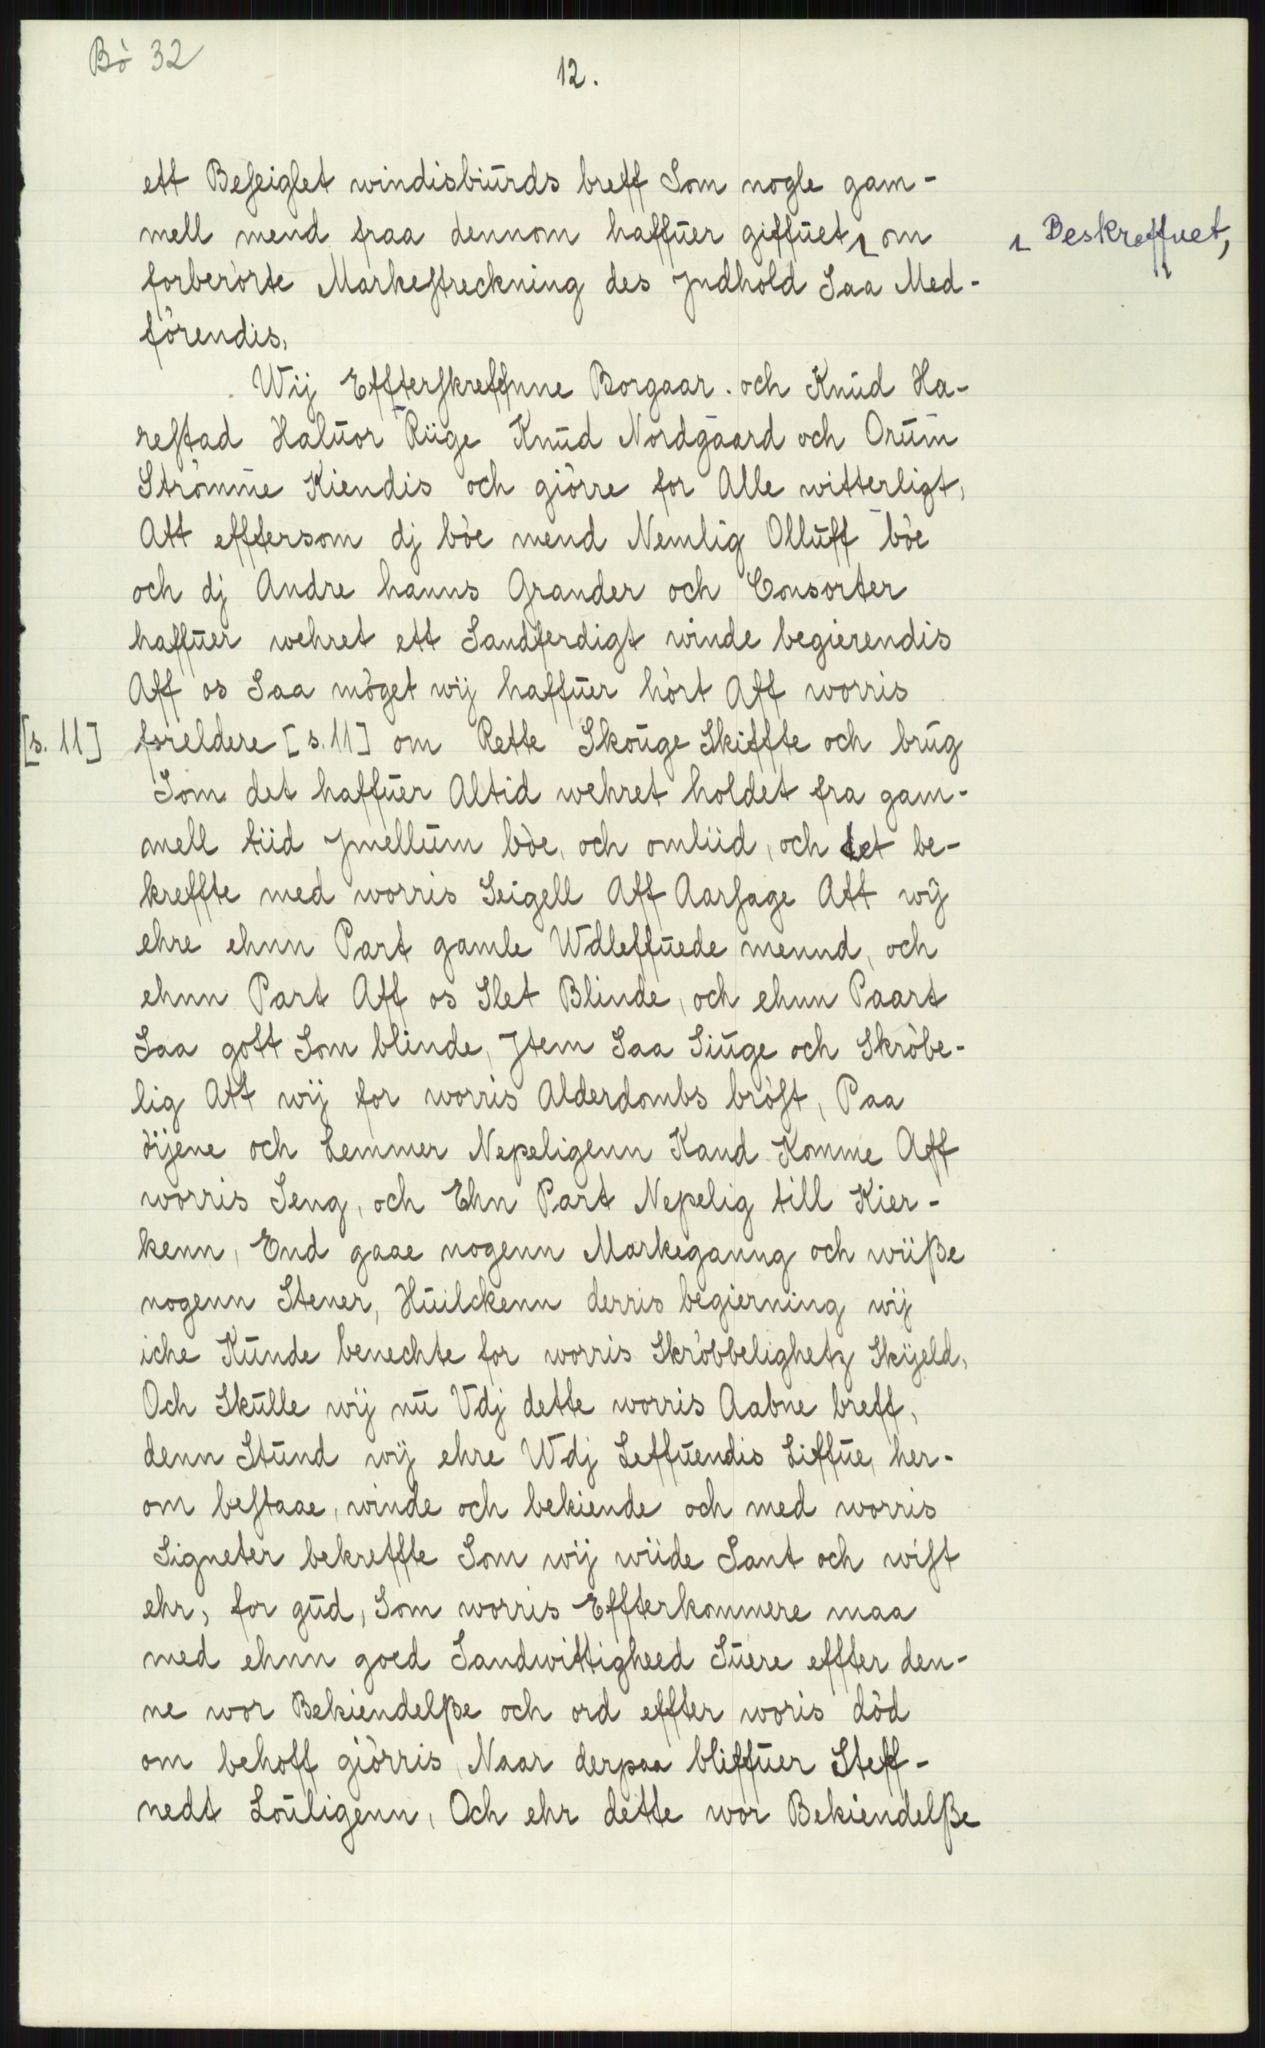 Bò 32
12.
ett Beseiglet windisbiurds breff Som nogle gam-
mell mend fraa dennom haffuer giffuet ʅ om
ʅ Beskreffuet,
forberòrte Markestreckning des Jndhold Saa Med-
fòrendis,
Wij Effterskreffnne Borgaar. och Knud Ha-
restad Haluor Rüge Knud Nordgaard och Orum
Stròmme Kiendis och giòrre for Alle witterligt,
Att efftersom dj bòe mend Nemlig Olluff bòe
och dj Andre hanns Grander och Consorter
haffuer wehret ett Sandferdigt winde begierendis
Aff os Saa mòget wij haffuer hòrt Aff worris
[s. 11] foreldere [s. 11] om Rette Skouge Skiffte och brug
Som det haffuer Altid wehret holdet fra gam-
mell tiid Jmellum bòe, och omliid, och det be-
kreffte med worris Seigell Aff Aarsage Att wij
ehre ehnn Part gamle Wdleffuede mennd, och
ehnn Part Aff os Slet Blinde, och ehnn Paart
Saa gott Som blinde, Jtem Saa Siuge och Skròbe-
lig Att wij for worris Alderdombs bròst, Paa
òijene och Lemmer Nepeligenn Kand Komme Aff
worris Seng, och Ehn Part Nepelig till Kier-
kenn, End gaae nogenn Markeganng och wüße
nogenn Stener, Huilckenn derris begierning wij
iche Kunde benechte for worris Skròbbelighetz Skijeld,
Och Skulle wij nu Vdj dette worris Aabne breff,
denn Stund wij ehre Wdj Leffuendis Liffue, her-
om bestaae, winde och bekiende och med worris
Signeter bekreffte Som wij wiide Sant och wist
ehr, for gud, Som worris Effterkommere maa
med ehnn goed Sandwittigheed Suere effter den-
ne wor Bekiendelße och ord effter woris dòd
om behoff giòrris, Naar derpaa bliffuer Steff-
nedt Louligenn, Och ehr dette wor Bekiendelße